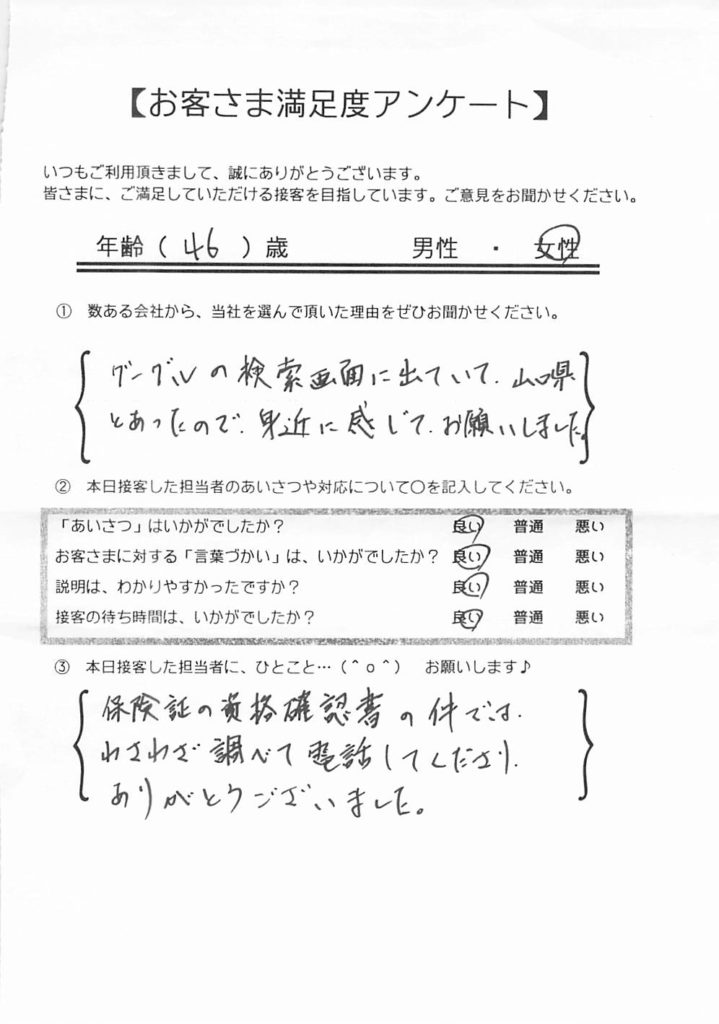 【お客さま満足度アンケート】
いつもご利用頂きまして、誠にありがとうございます。
皆さまに、ご満足していただける接客を目指しています。ご意見をお聞かせください。
年齢（ 46 ）歳 男性 ・ 女性
① 数ある会社から、当社を選んで頂いた理由をぜひお聞かせください。
グーグルの検索画面に出ていて、山口県
とあったので、身近に感じて、お願いしました。
② 本日接客した担当者のあいさつや対応について〇を記入してください。
「あいさつ」はいかがでしたか？ 良い 普通 悪い
お客さまに対する「言葉づかい」は、いかがでしたか？ 良い 普通 悪い
説明は、わかりやすかったですか？ 良い 普通 悪い
接客の待ち時間は、いかがでしたか？ 良い 普通 悪い
③ 本日接客した担当者に、ひとこと…（＾ｏ＾） お願いします♪
保険証の資格確認書の件では、
わざわざ調べて電話してくださり、
ありがとうございました。